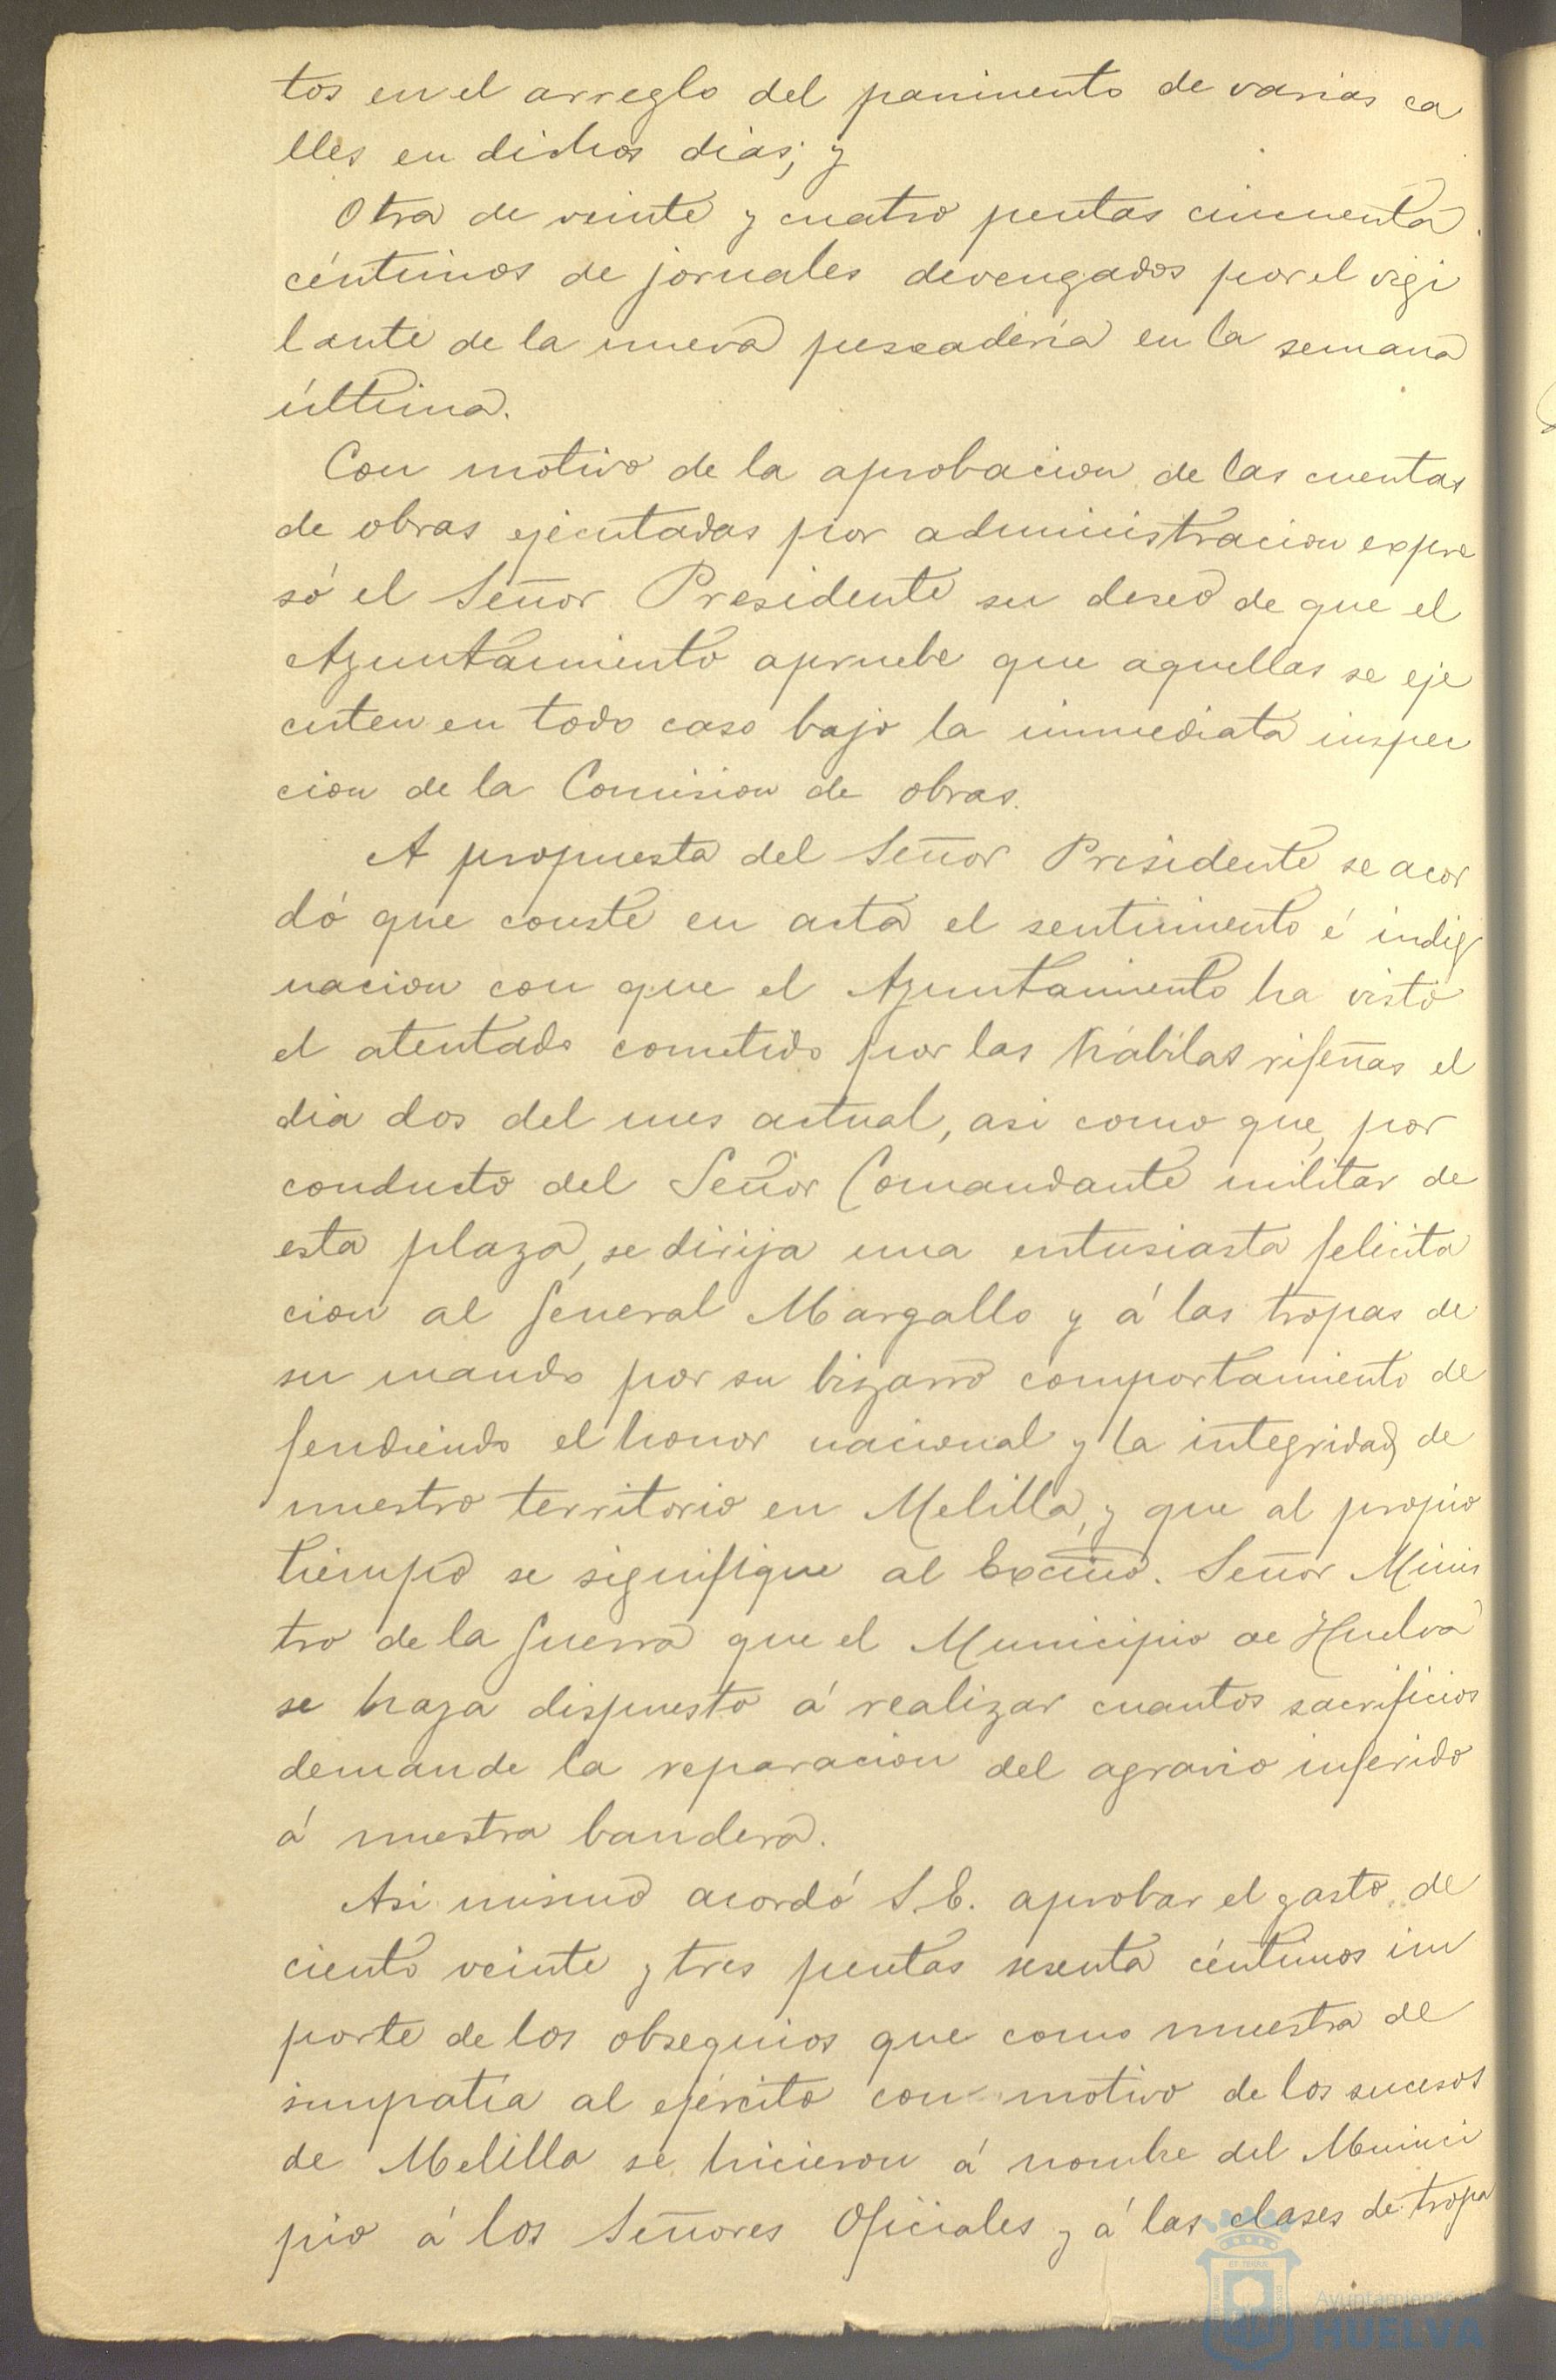 tos en el arreglo del pavimento de varias ca
lles en dichos dias; y
Otra de veinte y cuatro pesetas cincuenta
céntimos de jornales devengados por el vigi
lante de la nueva pescaderia en la semana
última.
Con motivo de la aprobacion de las cuentas
de obras ejecutadas por administracion expre
só el Señor Presidente su deseo de que el
Ayuntamiento apruebe que aquellas se eje
cuten en todo caso bajo la inmediata inspec
cion de la Comision de obras.
A propuesta del Señor Presidente se acor
dó que conste en acta el sentimiento é indig
nacion con que el Ayuntamiento ha visto
el atentado cometido por las kábilas rifeñas el
dia dos del mes actual, asi como que, por
conducto del Señor Comandante militar de
esta plaza, se dirija una entusiasta felicita
cion al General Margallo y á las tropas de
su mando por su bizarro comportamiento de
fendiendo el honor nacional y la integridad de
nuestro territorio en Melilla, y que al propio
tiempo se signifique al Excmo. Señor Minis
tro de la Guerra que el Municipio de Huelva
se haya dispuesto á realizar cuantos sacrificios
demande la reparacion del agravio inferido
á nuestra bandera.
Asi mismo acordó S.E. aprobar el gasto de
ciento veinte y tres pesetas sesenta céntimos im
porte de los obsequios que como muestra de
simpatía al ejército con motivo de los sucesos
de Melilla se hicieron á nombre del Munici
pio á los Señores Oficiales y á las clases de tropa
Ayuntamiento de
HUELVA